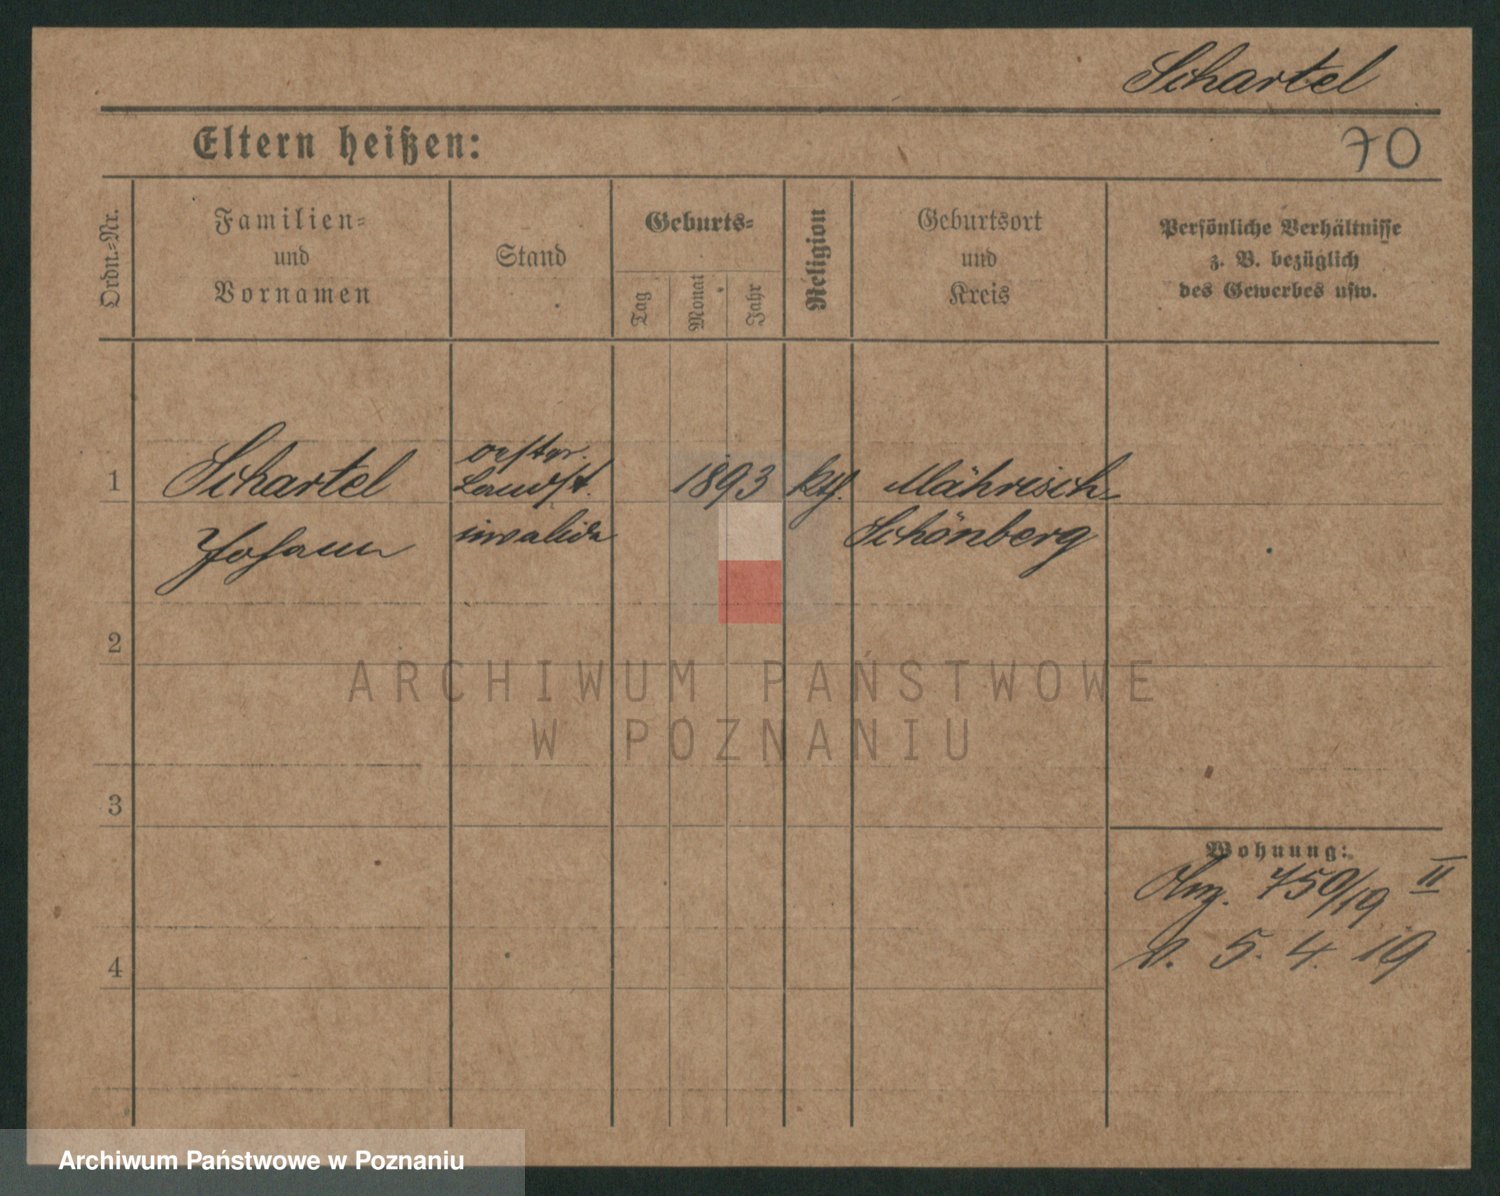 Schartel
Eltern heißen:
70
Ordn.-Nr.
Familien-
und
Vornamen
Stand
Geburts-
Tag
Monat
Jahr
Religion
Geburtsort
und
Kreis
Persönliche Verhältnisse
z. B. bezüglich
des Gewerbes usw.
1
Schartel
Johann
oester.
Landst.
invalide
1893
kth.
Mährisch-
Schönberg
2
3
4
Wohnung:
750/19 II
v. 5. 4. 19
ARCHIWUM PAŃSTWOWE
W POZNANIU
Archiwum Państwowe w Poznaniu